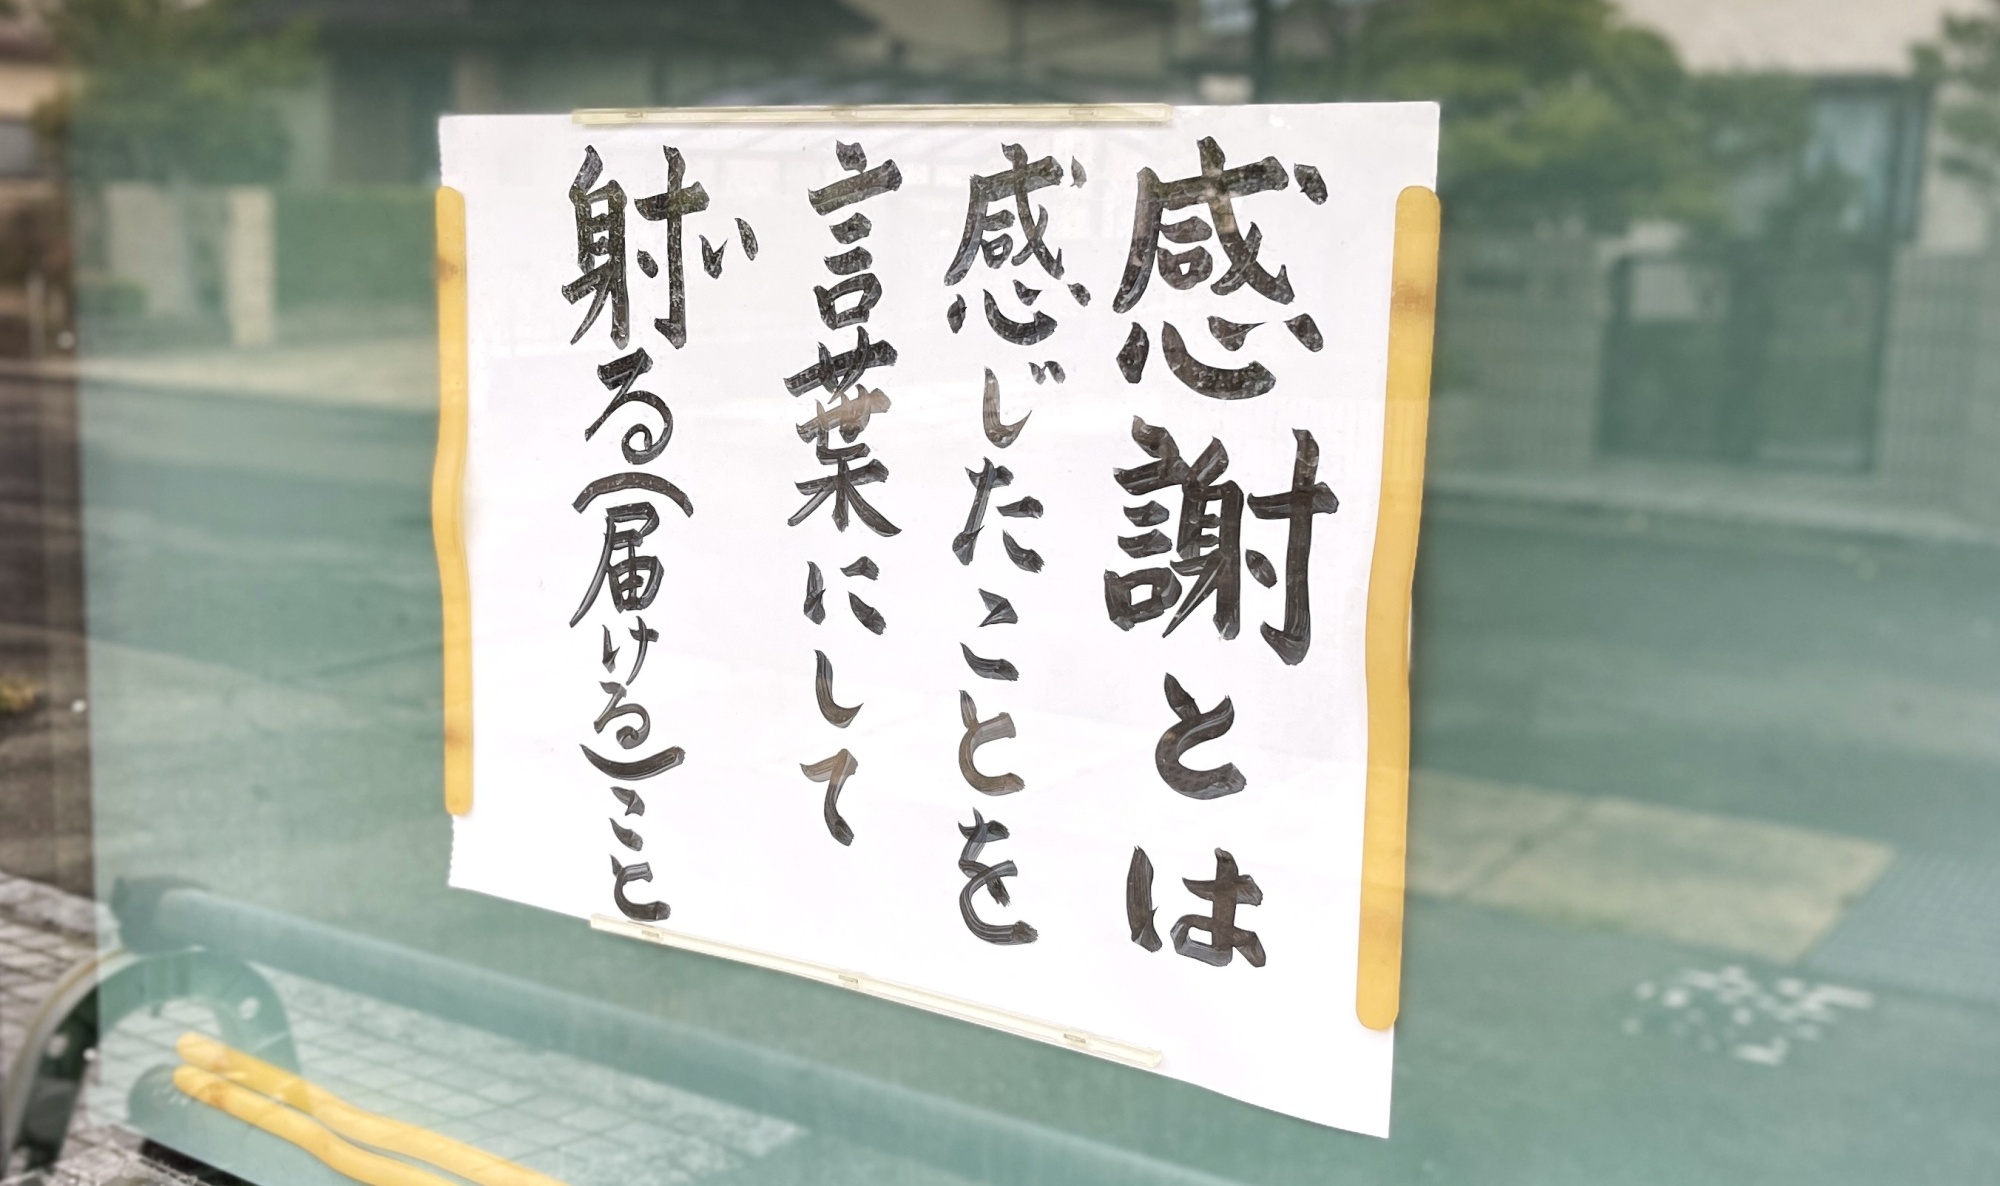 感謝とは
感じたことを
言葉にして
射る(届ける)こと
い